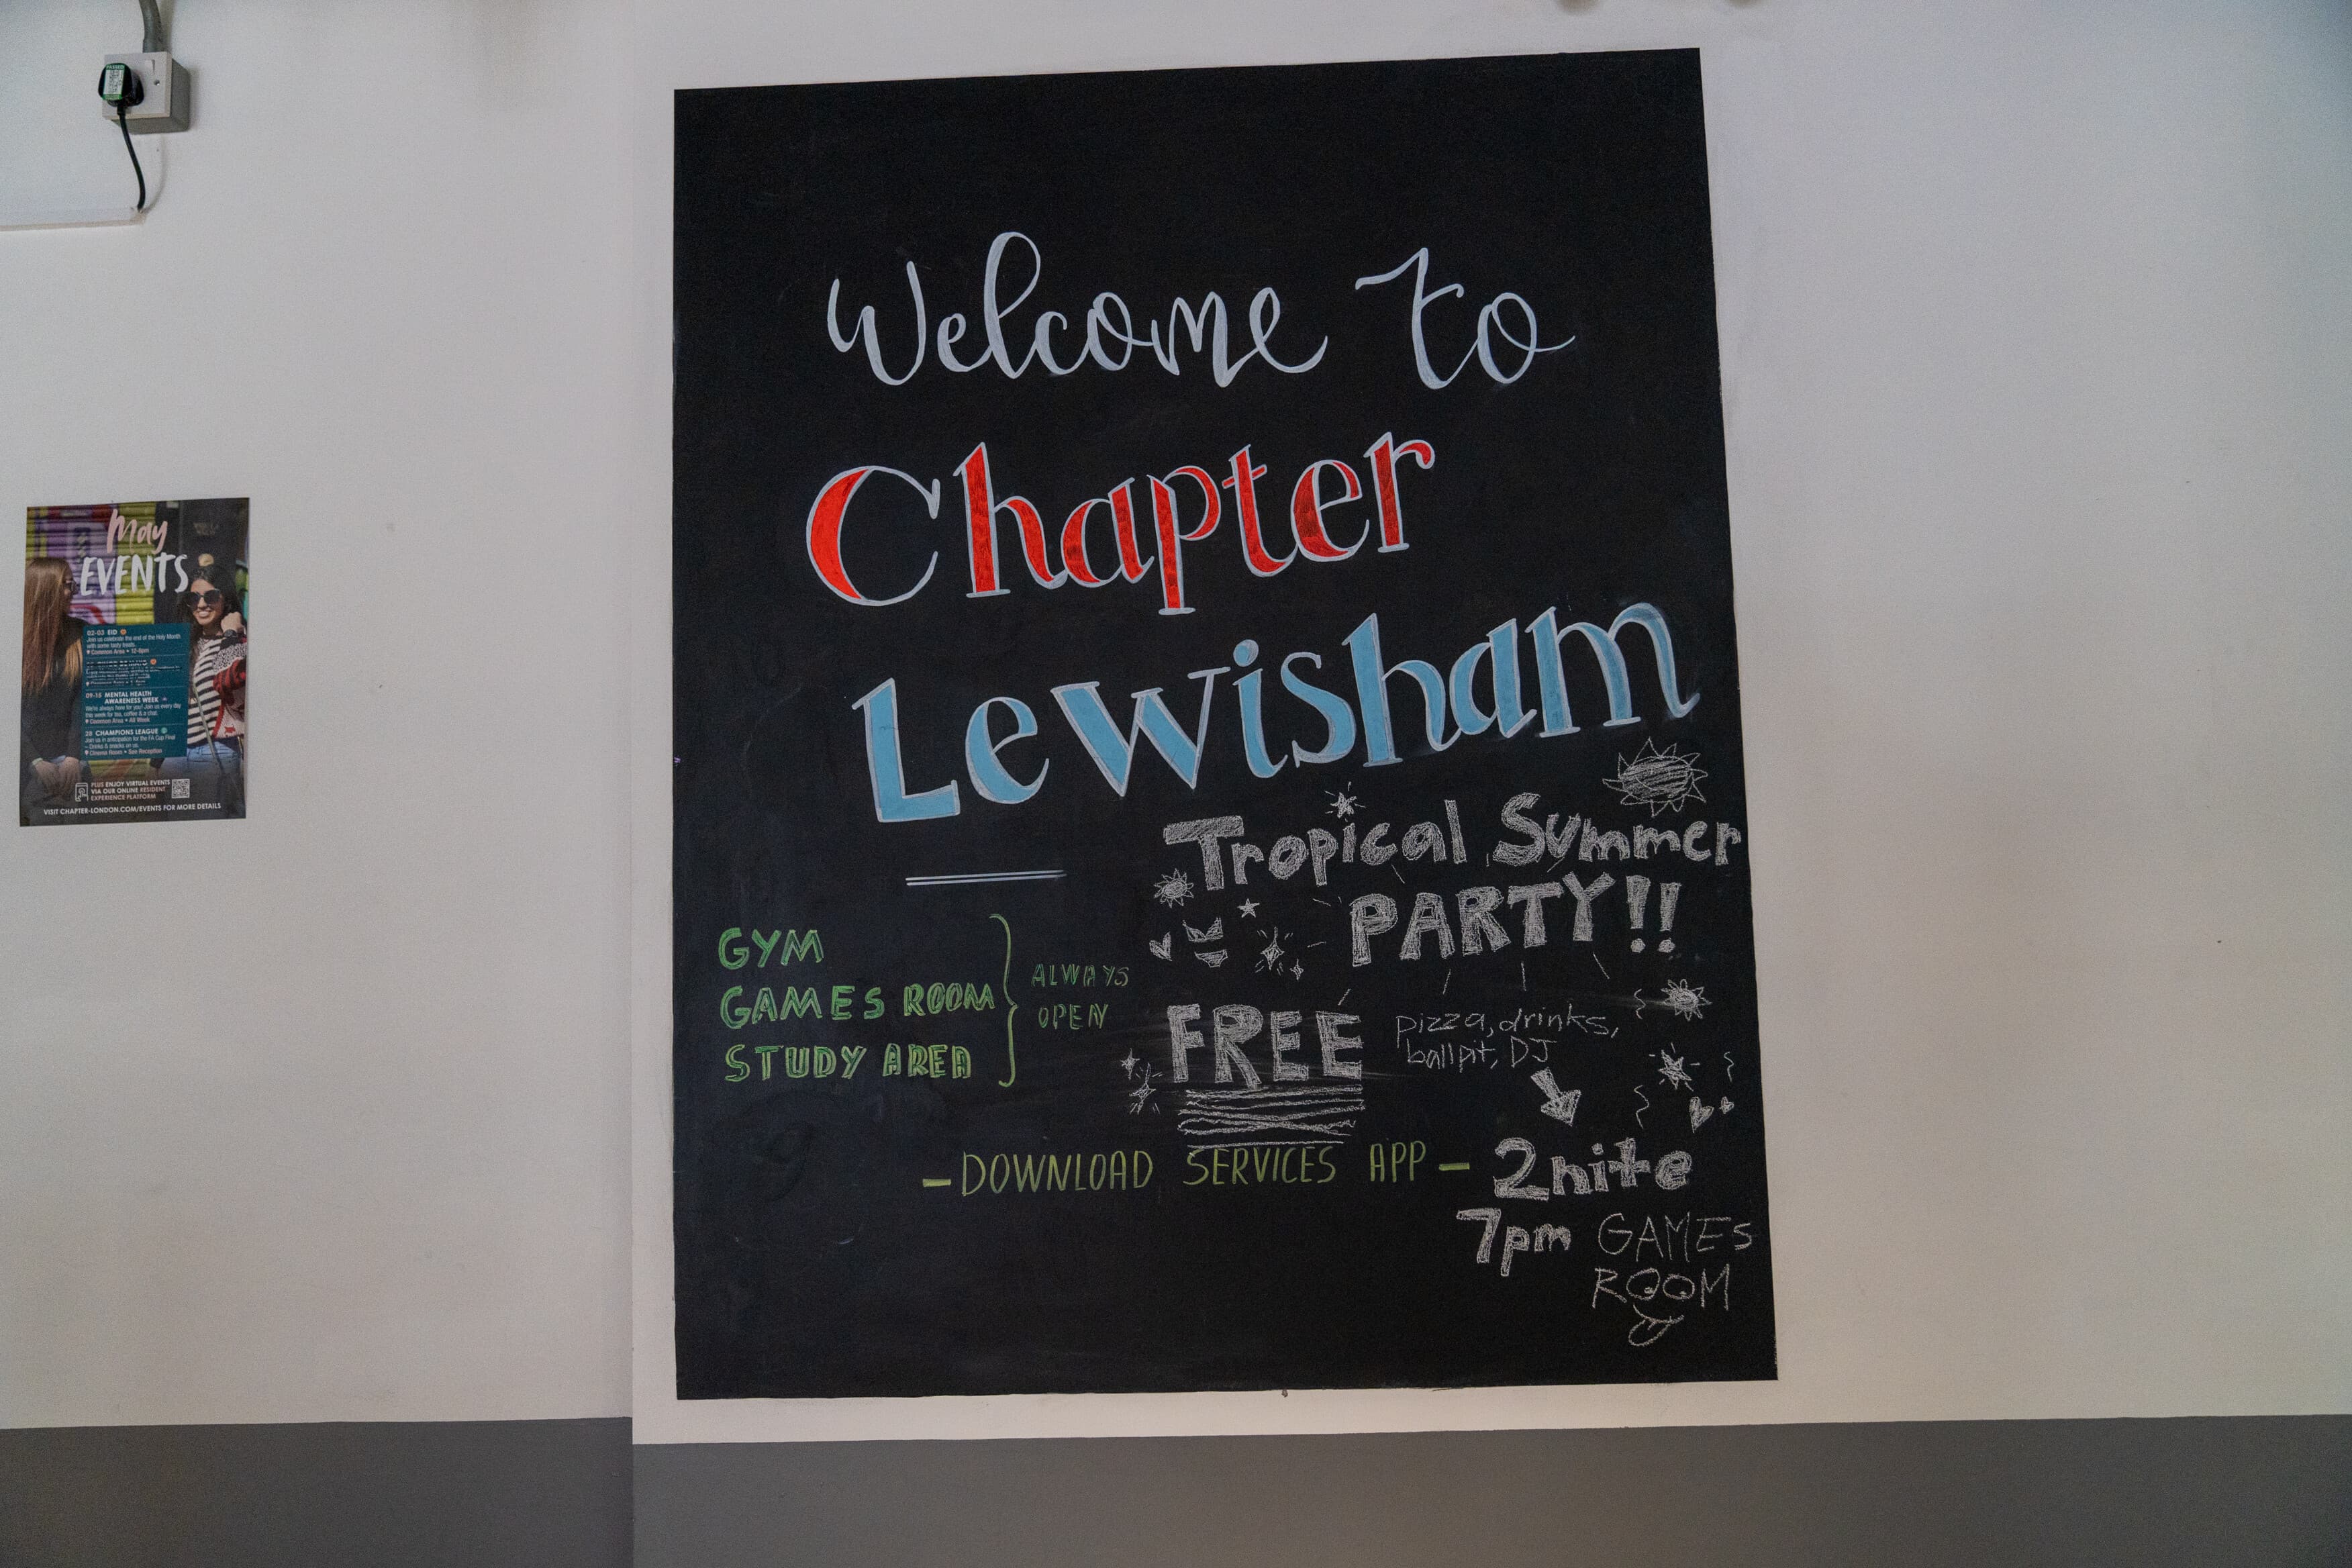 May
EVENTS
02-03 EID
Join us celebrate the end of the Holy Month
with some tasty treats.
Common Area • 12-6pm
09-15 MENTAL HEALTH
AWARENESS WEEK
We're always here for you! Join us every day
this week for tea, coffee & a chat.
Common Area • All Week
28 CHAMPIONS LEAGUE
Join us in anticipation for the FA Cup Final
– Drinks & snacks on us.
Cinema Room • See Reception
PLUS ENJOY VIRTUAL EVENTS
VIA OUR ONLINE RESIDENT
EXPERIENCE PLATFORM
VISIT CHAPTER-LONDON.COM/EVENTS FOR MORE DETAILS
Welcome to
Chapter
Lewisham
GYM
GAMES ROOM
STUDY AREA
ALWAYS
OPEN
Tropical Summer
PARTY!!
FREE
pizza, drinks,
ballpit, DJ
-DOWNLOAD SERVICES APP-
2nite
7pm GAMES
ROOM